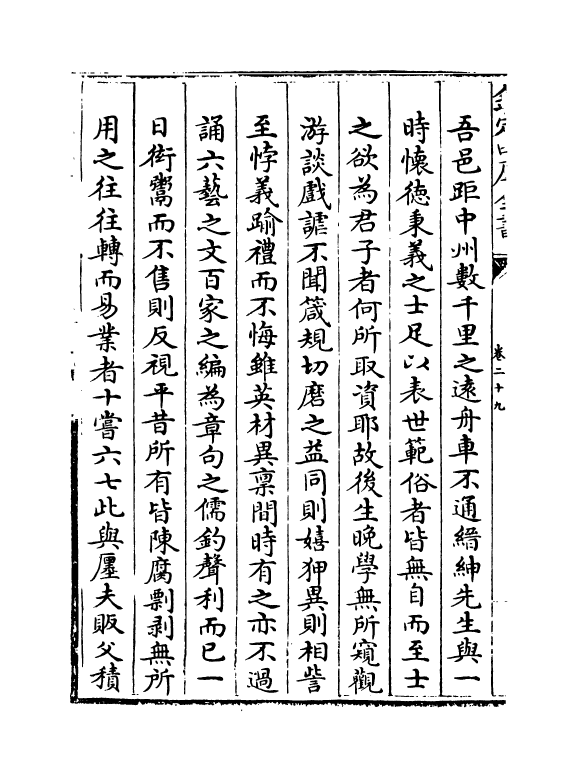 欽定四庫全書
卷二十九
吾邑距中州數千里之遠舟車不通縉紳先生與一
時懐徳秉義之士足以表世範俗者皆無自而至士
之欲為君子者何所取資耶故後生晚學無所窺觀
游談戲謔不聞箴規切磨之益同則嬉狎異則相訾
至悖義踰禮而不悔雖英材異稟間時有之亦不過
誦六藝之文百家之編為章句之儒釣聲利而已一
日衒鬻而不售則反視平昔所有皆陳腐剽剥無所
用之往往轉而易業者十嘗六七此與㕓夫販父積